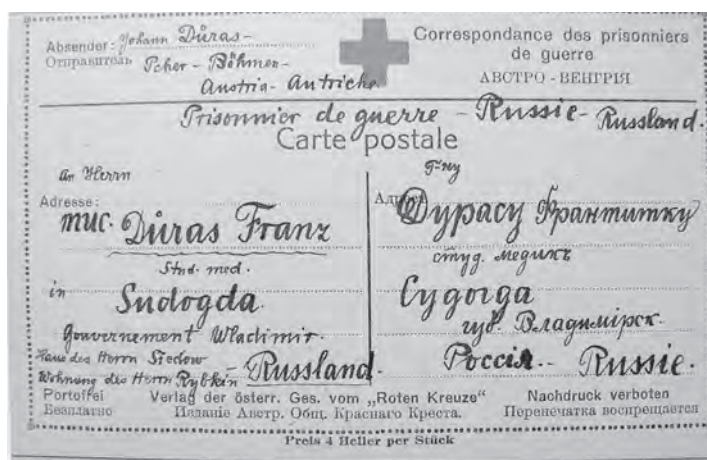 Absender: Johann Düras -
Отправитель Pcher - Böhmen -
Austria - Autriche
Correspondance des prisonniers
de guerre
АВСТРО-ВЕНГРІЯ
Prisonnier de guerre - Russie - Russland.
Carte postale
An Herrn
Adresse:
Düras Franz
Stud. med.
in Sudogda
Gouvernement Wladimir.
Haus des Herrn Siedow
Wohnung des Herrn Rybkin - Russland.
Г-ну
Адресъ
Дурасу Франтишку
студ. медикъ
Судогда
губ. Владимірск.
Россія. - Russie.
Portofrei Verlag der österr. Ges. vom „Roten Kreuze“ Nachdruck verboten
Безплатно Изданіе Австр. Общ. Краснаго Креста. Перепечатка воспрещается
Preis 4 Heller per Stück